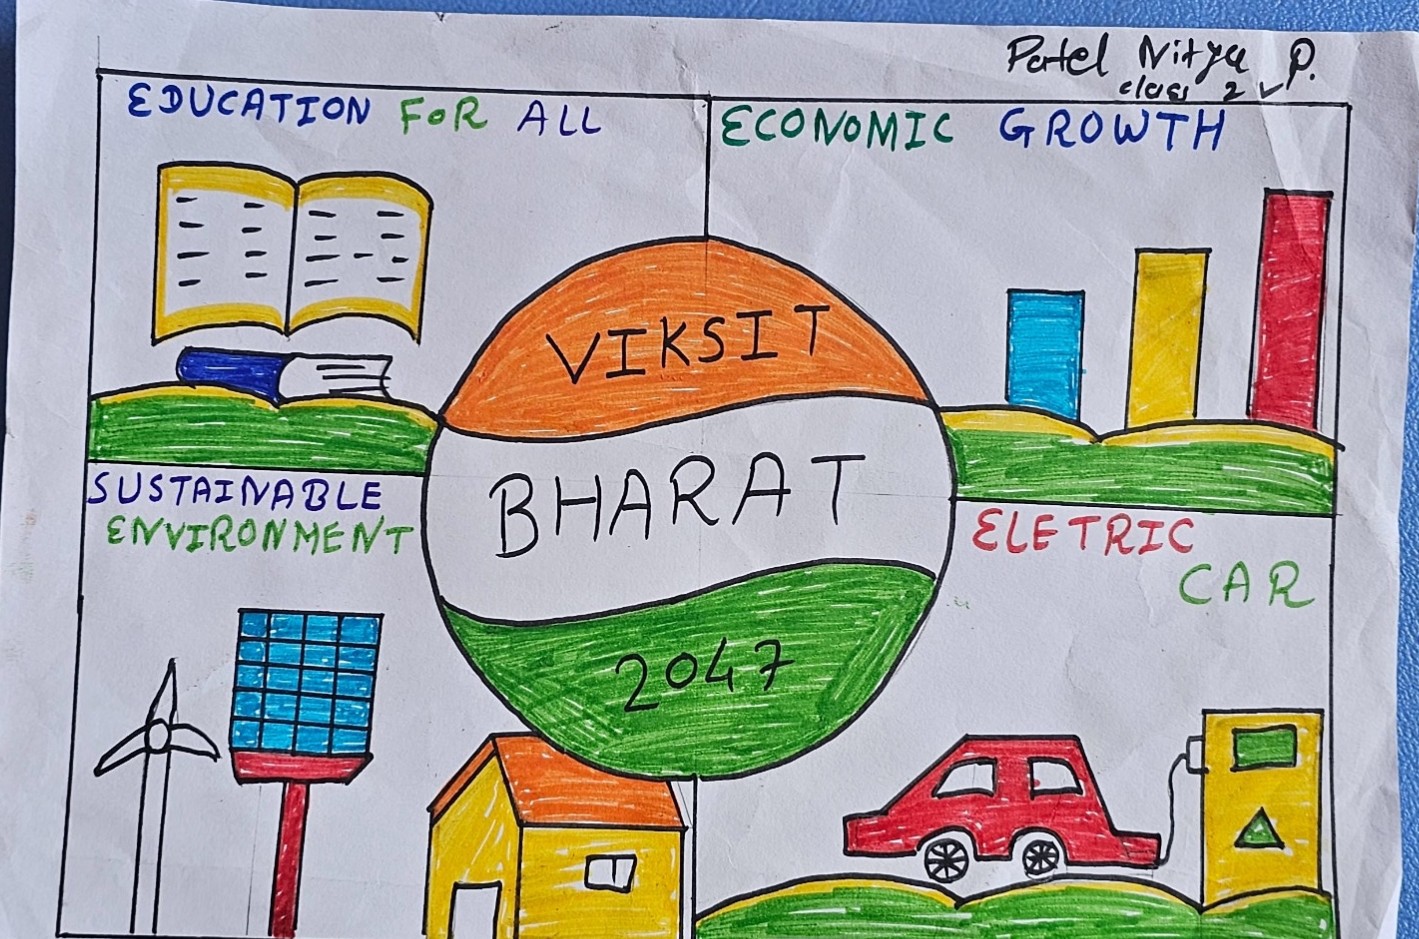 Patel Nitya P.
class 2
EDUCATION FOR ALL
ECONOMIC GROWTH
VIKSIT
BHARAT
2047
SUSTAINABLE
ENVIRONMENT
ELETRIC
CAR